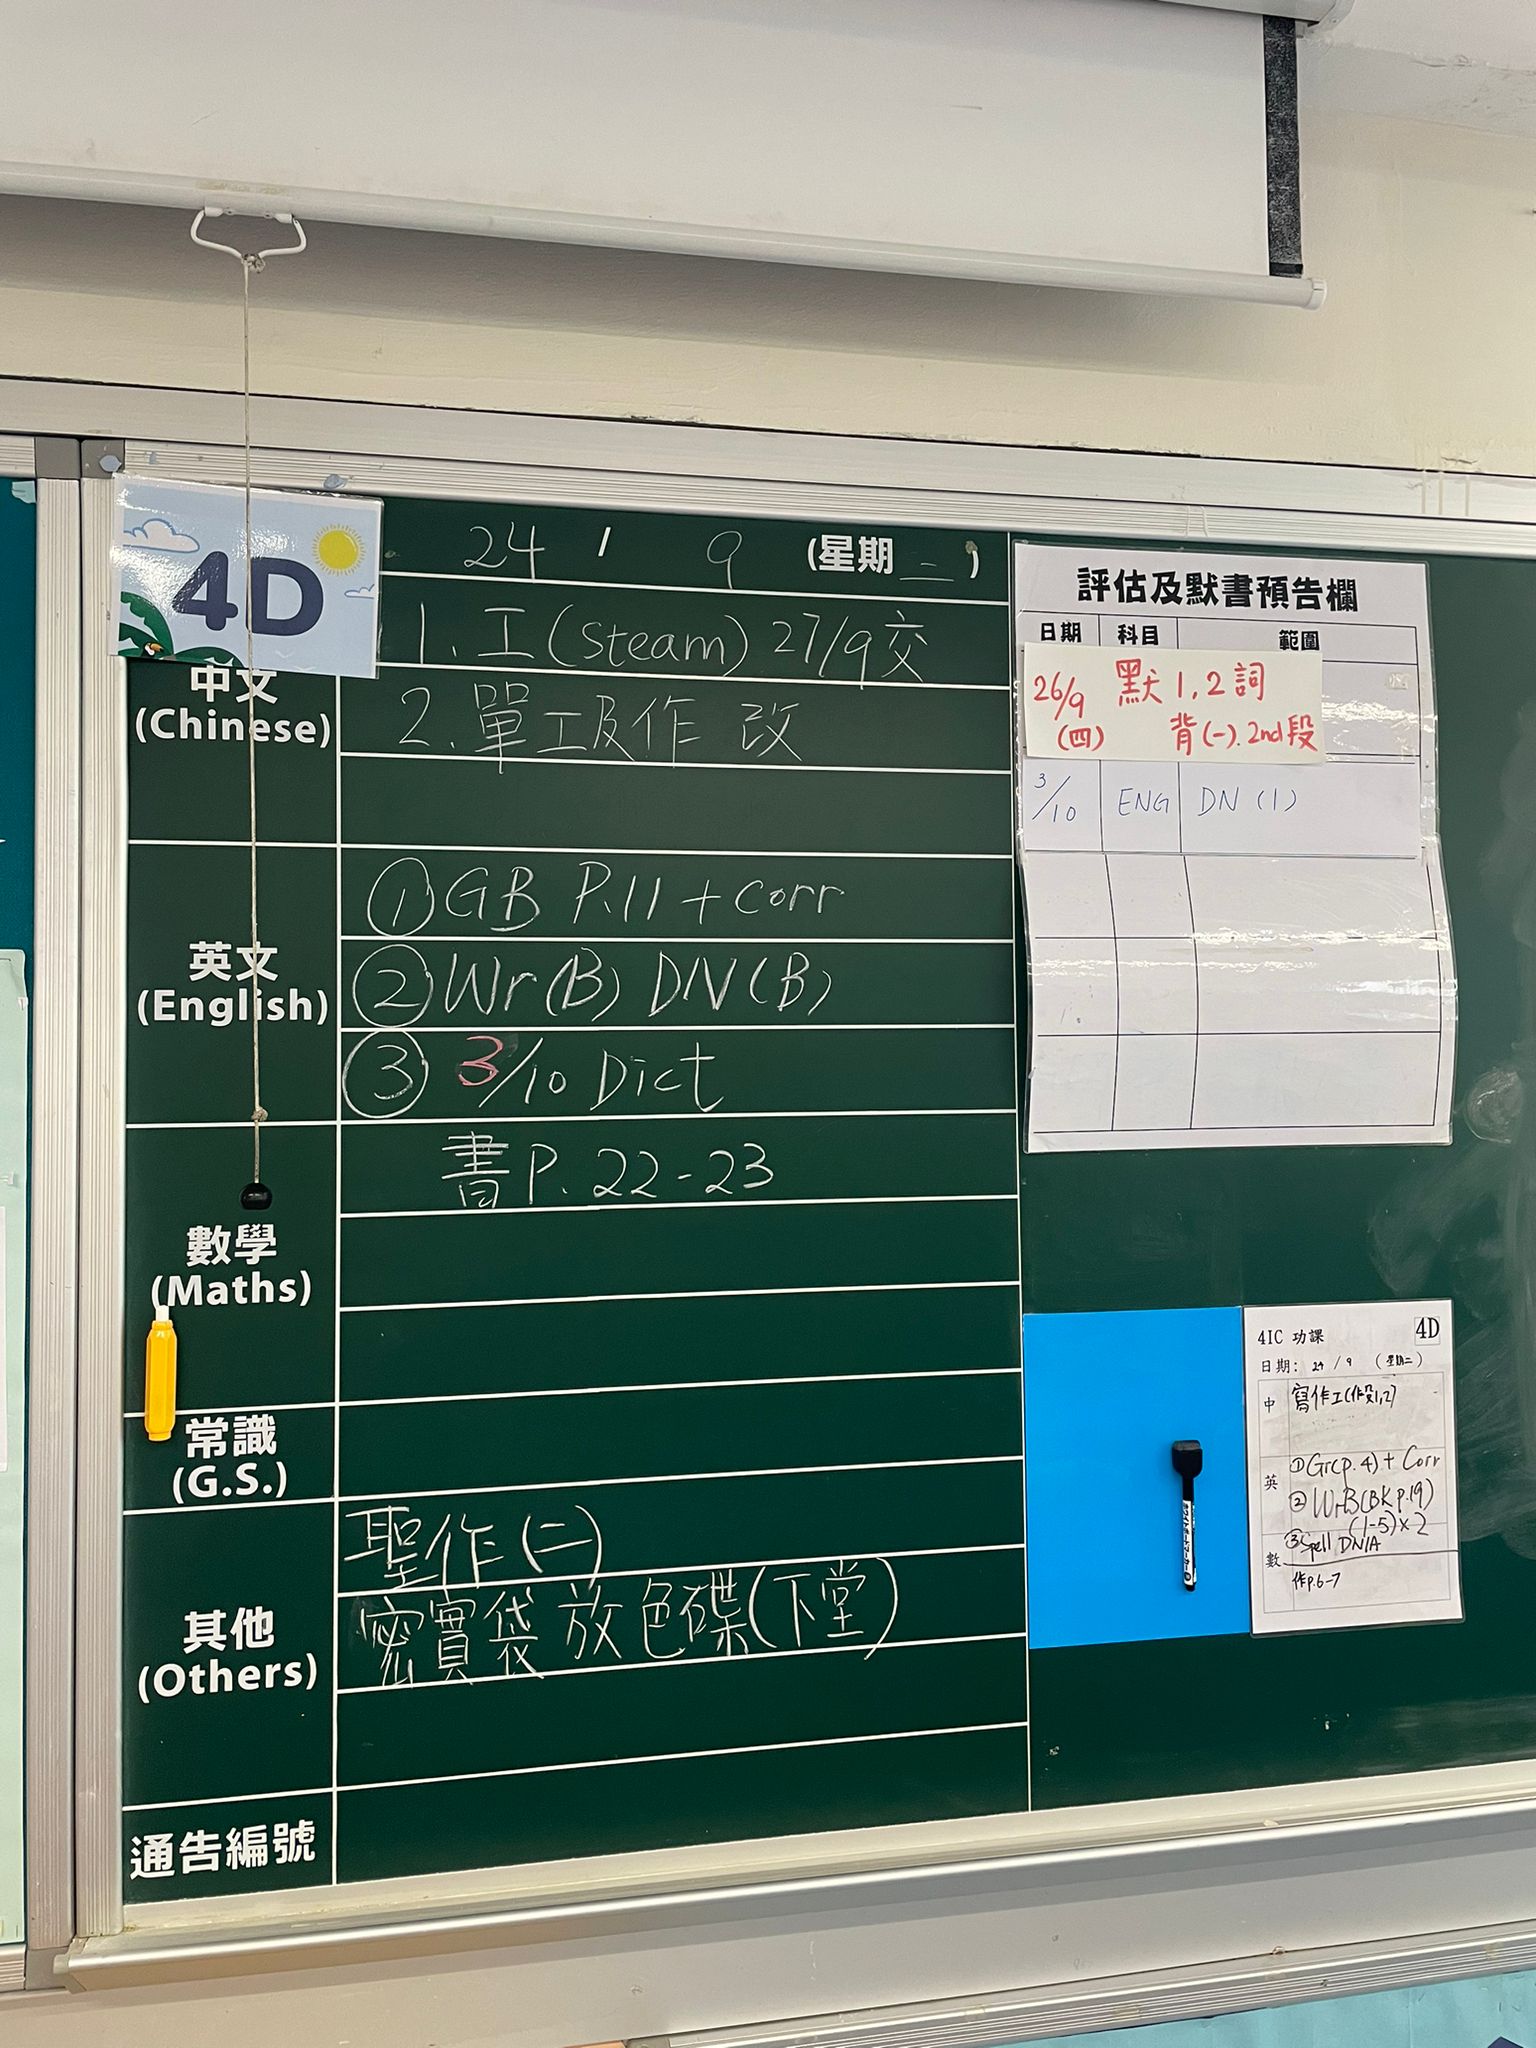 4D
24 / 9 (星期二)
中文
(Chinese)
1. 工(Steam) 27/9交
2. 單工及作 改
英文
(English)
① GB P.11 + Corr
② Wr(B) DN(B)
③ 3/10 Dict
數學
(Maths)
書P. 22-23
常識
(G.S.)
其他
(Others)
聖作(二)
密實袋放色碟(下堂)
通告編號
評估及默書預告欄
日期 科目 範圍
26/9 默 1,2詞
(四) 背(一). 2nd段
3/10 ENG DN (1)
4IC 功課 4D
日期: 24 / 9 (星期二)
中 寫作工(作段1,2)
英 ①Gr(p.4) + Corr
② WrB(BK p.19)
(1-5)×2
③Spell DN1A
數 作p.6-7